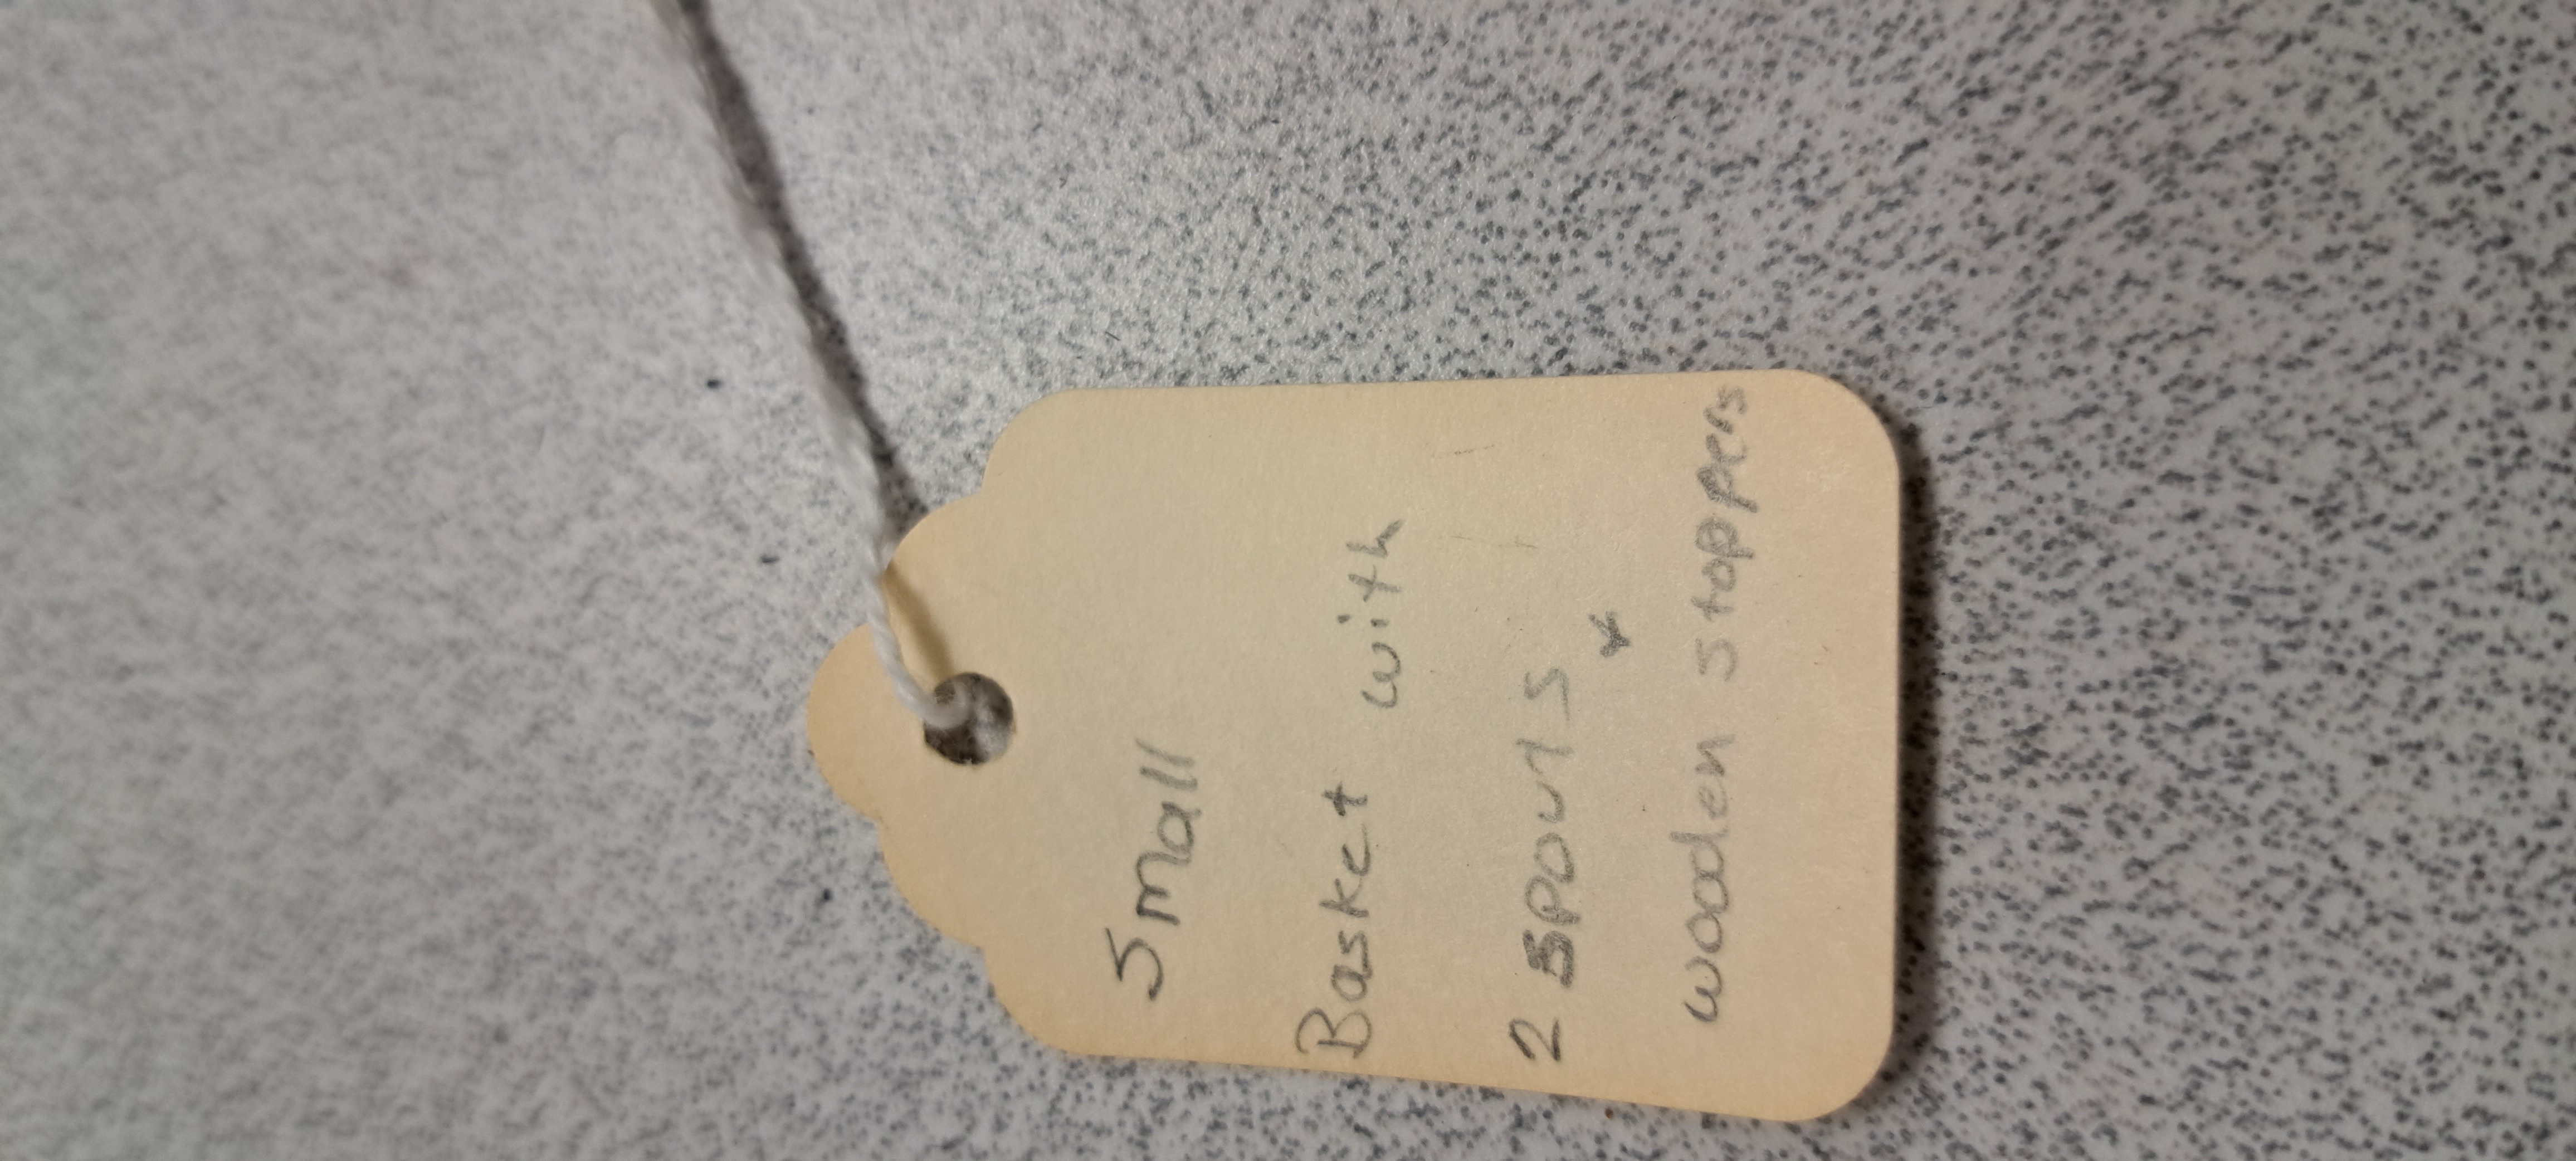 Small
Basket with
2 spouts
+
wooden stoppers